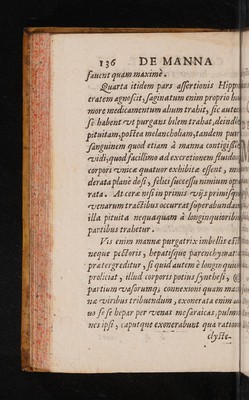 136 DE MANNA
fauent quam maximè.
Quarta itidem pars assertionis Hippo
cratem agnoscit, saginatum enim proprio hu
more medicamentum alium trahit, sic autem
se habent vt purgans bilem trahat, deinde
pituitam, postea melancholiam, tandem purum
sanguinem quod etiam à manna contigisse
vidi, quod facillimo ad excretionem fluido
corporis vnicæ quatuor exhibitæ essent, mo
derata planè dosi, felici successu nimium ope
rata. At ceræ nisi in primis vijs primisque
venarum tractibus occurrat superabundans
illa pituita nequaquam à longinquioribus
partibus trahetur.
Vis enim mannæ purgatrix imbellis est
neque pectoris, hepatisque parenchymata
prætergreditur, si quid autem è longinquo
proliciat, illud corporis potius synthesi,
partium vasorumque connexioni quam man
næ viribus tribuendum, exonerata enim al
uo se se hepar per venas mesaraicas, pulmo
nes ipsi, caputque exonerabunt qua ratione
clyste-